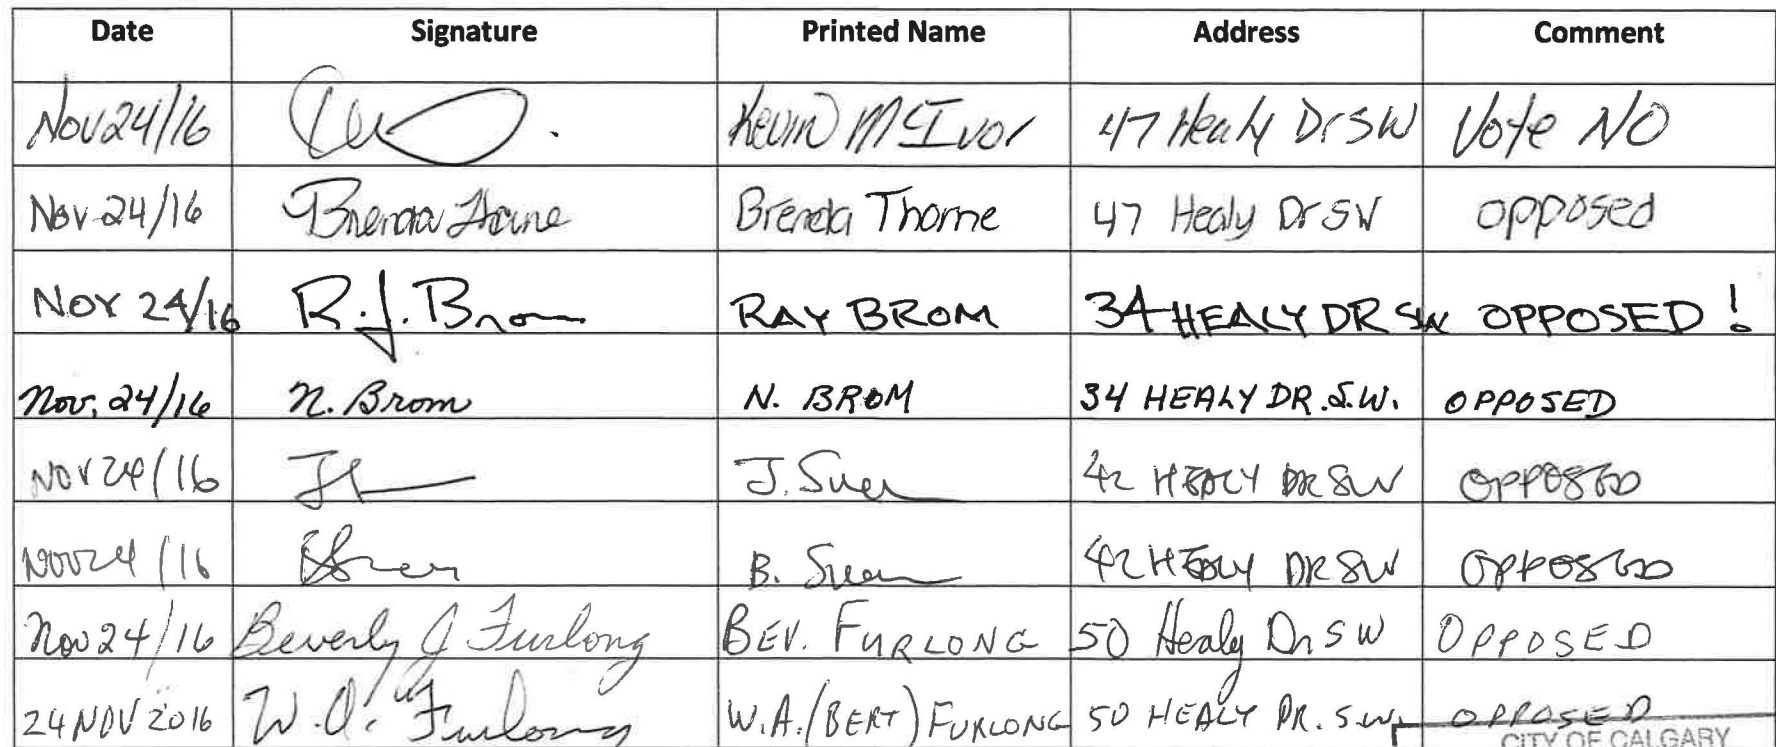 Date Signature Printed Name Address Comment
Nov 24/16 Kevin McIvor 47 Healy Dr SW Vote NO
Nov 24/16 Brenda Thorne Brenda Thorne 47 Healy Dr SW opposed
NOV 24/16 R.J. Brom RAY BROM 34 HEALY DR SW OPPOSED!
Nov. 24/16 N. Brom N. BROM 34 HEALY DR. S.W. OPPOSED
NOV 24/16 J. 42 HEALY DR SW OPPOSED
NOV 24/16 B. 42 HEALY DR SW OPPOSED
Nov 24/16 Beverly J Furlong BEV. FURLONG 50 Healy Dr SW OPPOSED
24 NOV 2016 W.A. Furlong W.A. (BERT) FURLONG 50 HEALY DR. S.W. OPPOSED
CITY OF CALGARY